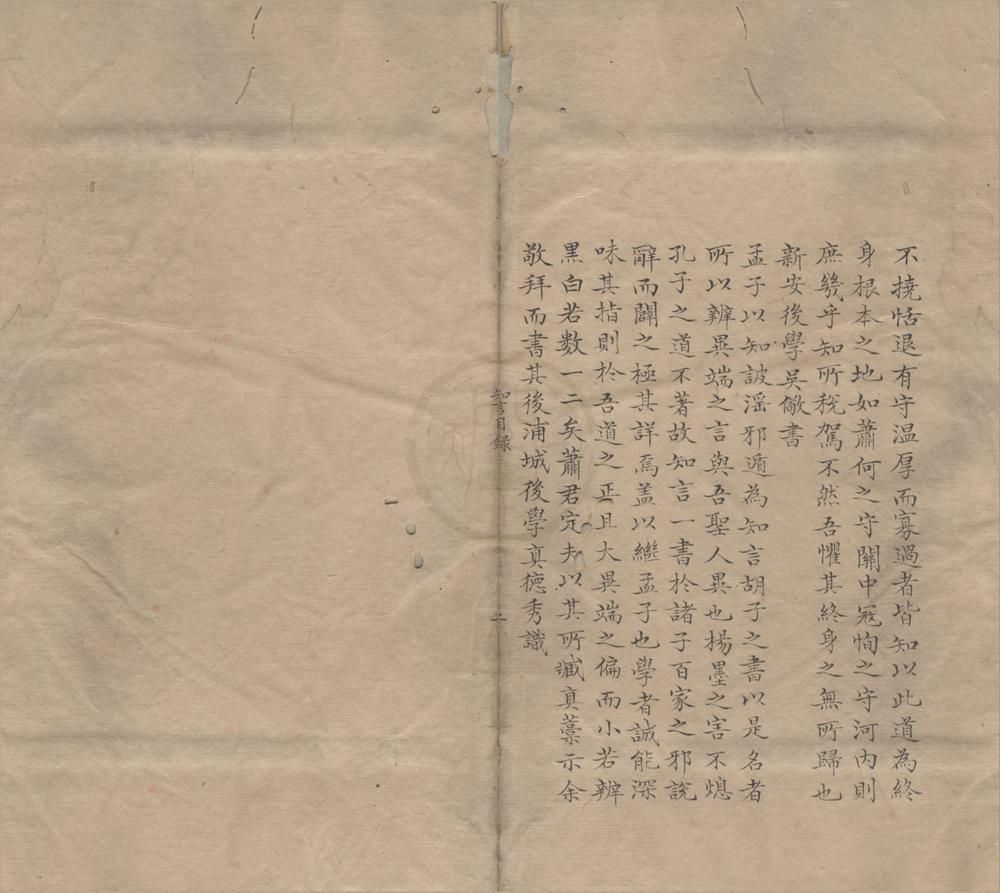 不撓恬退有守温厚而寡過者皆知以此道為終
身根本之地如蕭何之守關中寇恂之守河内則
庶幾乎知所稅駕不然吾懼其終身之無所歸也
新安後學吳儆書
孟子以知詖滛邪遁為知言胡子之書以是名者
所以辨異端之言與吾聖人異也楊墨之害不熄
孔子之道不著故知言一書於諸子百家之邪說
辭而闢之極其詳焉盖以繼孟子也學者誠能深
味其指則於吾道之正且大異端之偏而小若辨
黒白若數一二矣蕭君定夫以其所臧真藁示余
敬拜而書其後浦城後學真徳秀識
知言目録
二